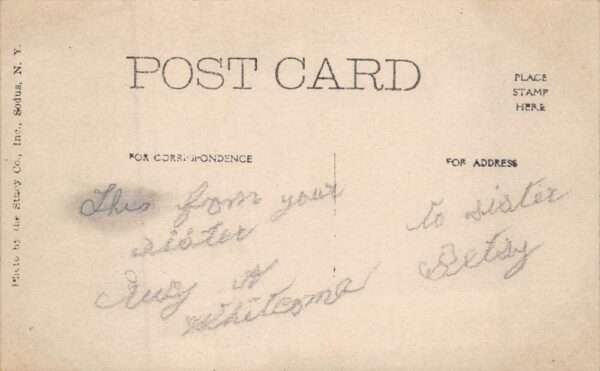 POST CARD
PLACE
STAMP
HERE
FOR CORRESPONDENCE
FOR ADDRESS
This from your
sister
to sister
Betsy
Whitcome
Photo by the Stacy Co., Inc., Sodus, N. Y.